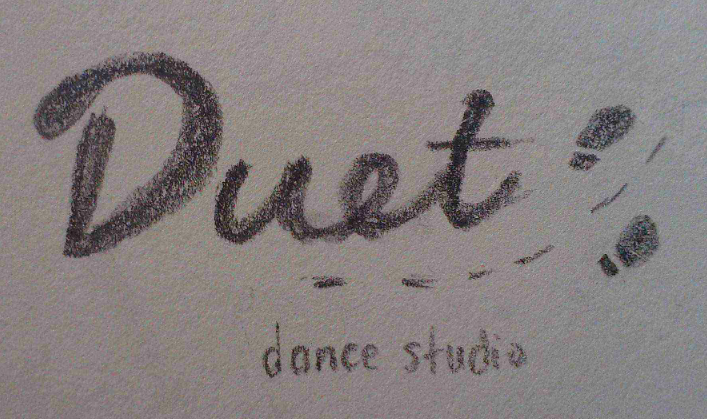 Duet
dance studio